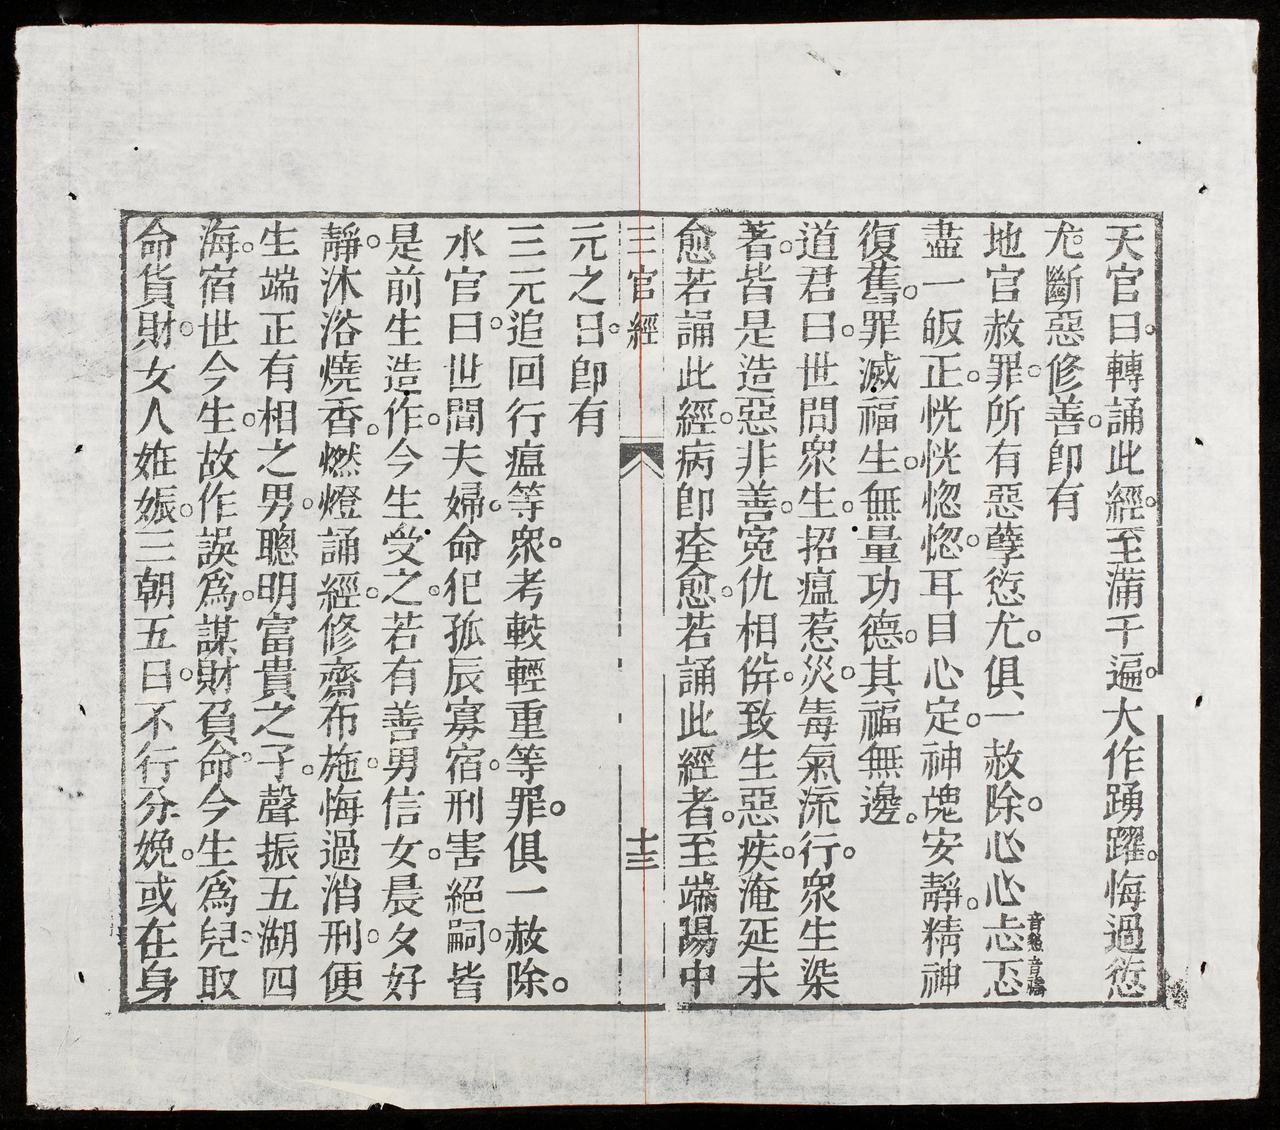 天官曰。轉誦此經。至滿千遍。大作踴躍。悔過愆
尤。斷惡修善。卽有
地官赦罪。所有惡孽愆尤。俱一赦除。心心忐音懇忑音禱
盡一皈正。恍恍惚惚。耳目心定。神魂安靜。精神
復舊。罪滅福生。無量功德。其福無邊。
道君曰。世間衆生。招瘟惹災。毒氣流行。衆生染
著。皆是造惡非善。寃仇相併。致生惡疾。淹延未
愈。若誦此經。病卽痊愈。若誦此經者。至端陽中
三官經 十三
元之日。卽有
三元追回行瘟等衆。考較輕重等罪。俱一赦除。
水官曰。世間夫婦。命犯孤辰寡宿。刑害絕嗣。皆
是前生造作。今生受之。若有善男信女。晨夕好
靜。沐浴燒香。燃燈誦經。修齋布施。悔過消刑。便
生端正有相之男。聰明富貴之子。聲振五湖四
海。宿世今生。故作誤爲。謀財負命。今生爲兒。取
命貨財。女人姙娠。三朝五日。不行分娩。或在身